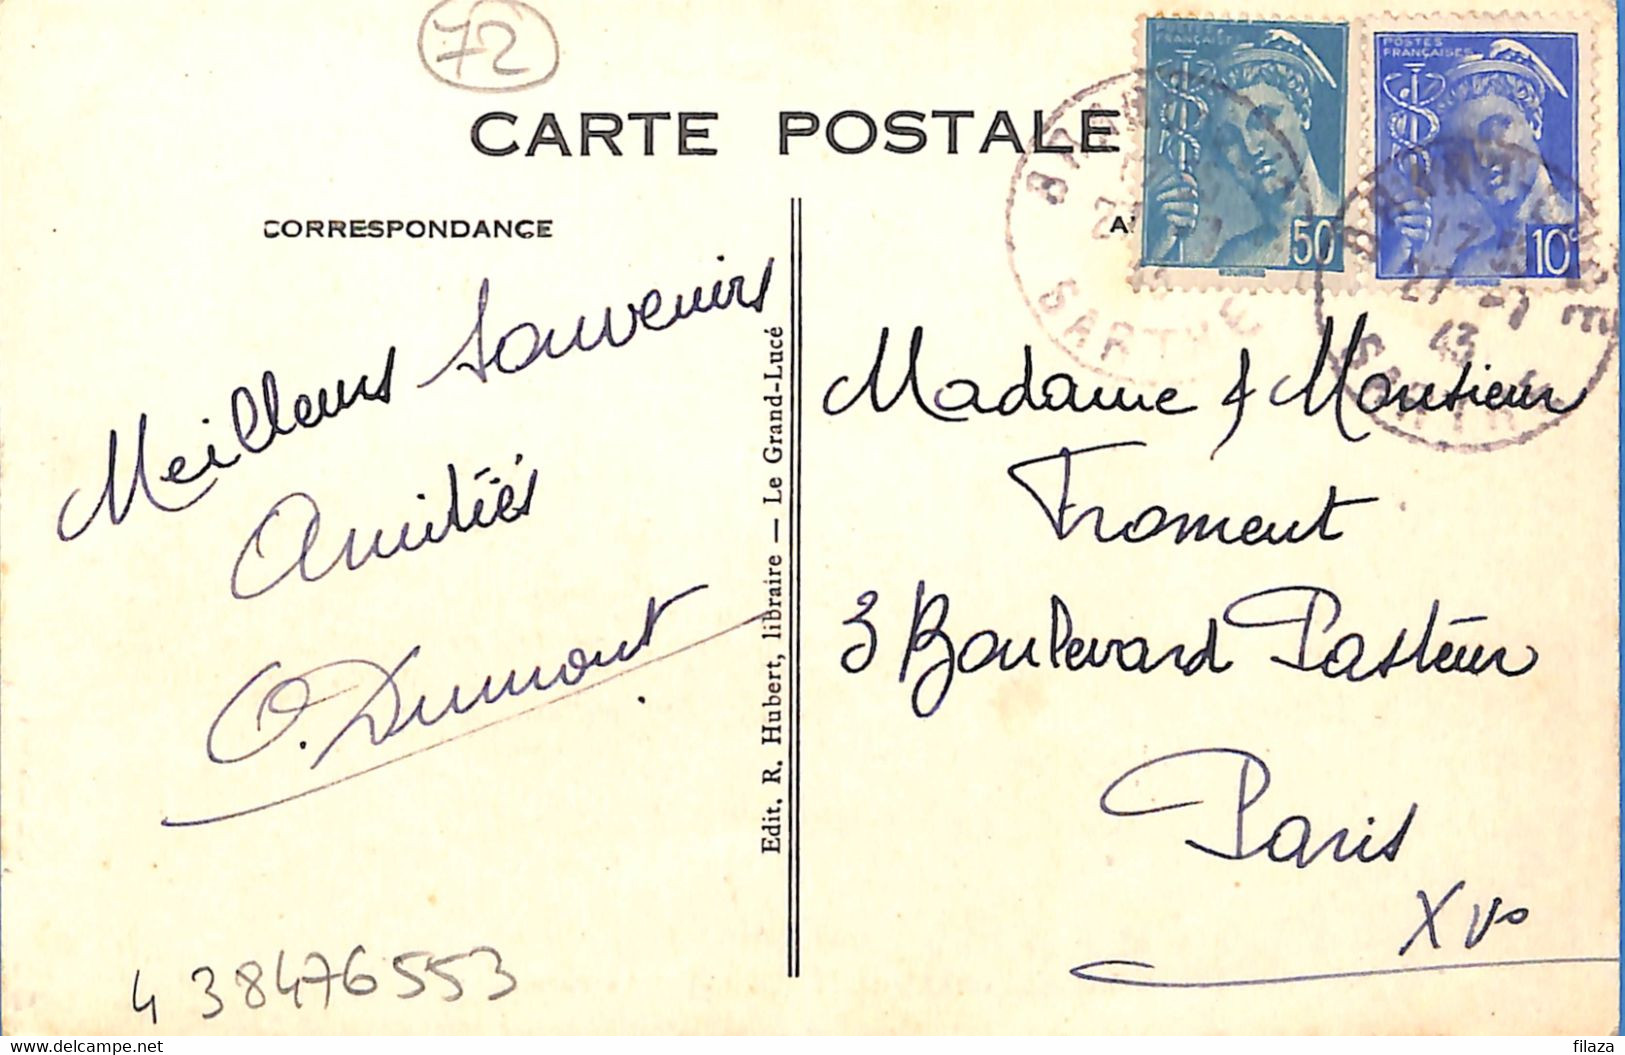 72
CARTE POSTALE
CORRESPONDANCE
Meilleurs Souvenirs
Amitiés
O. Dumont
Edit. R. Hubert, libraire — Le Grand-Lucé
POSTES
FRANÇAISES
50
POSTES
FRANÇAISES
10c
SARTHE
17
27 -7
43
SARTHE
Madame & Monsieur
Froment
3 Boulevard Pasteur
Paris
XVo
4 38476553
delcampe.net
filaza